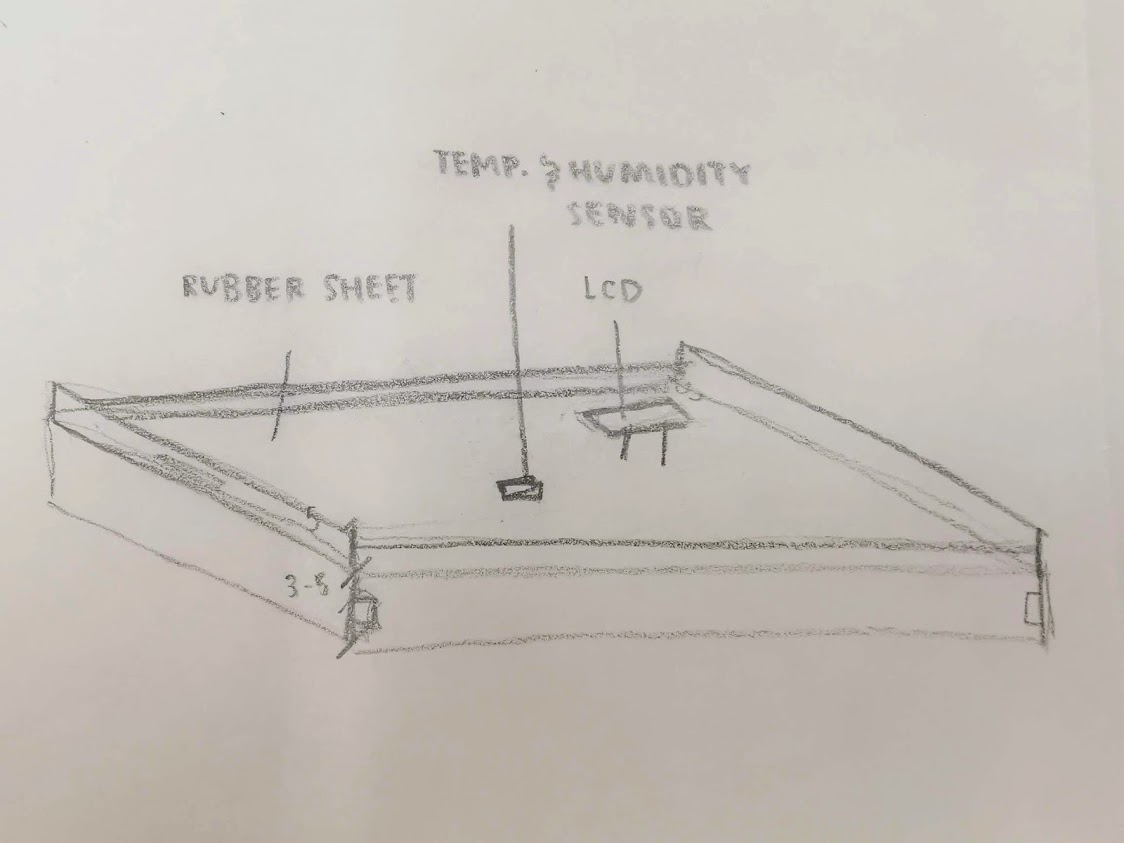 TEMP. & HUMIDITY
SENSOR
RUBBER SHEET
LCD
5
3-8